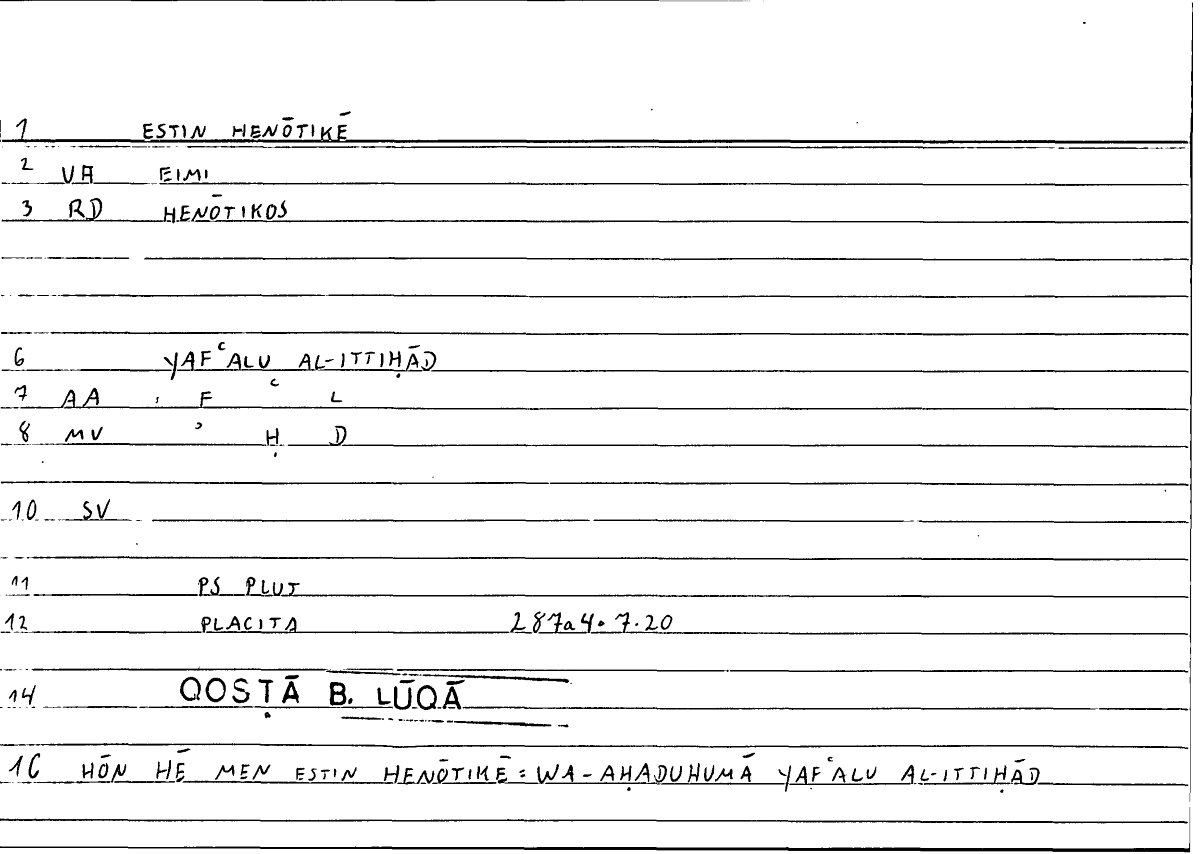 1 ESTIN HENŌTIKĒ
2 VA EIMI
3 RD HENŌTIKOS
6 YAFʿALU AL-ITTIḤĀD
7 AA , F ʿ L
8 MV ʾ Ḥ D
10 SV
11 PS PLUT
12 PLACITA 287a4. 7.20
14 QOSṬĀ B. LŪQĀ
16 HŌN HĒ MEN ESTIN HENŌTIKĒ = WA-AḤADUHUMĀ YAFʿALU AL-ITTIḤĀD